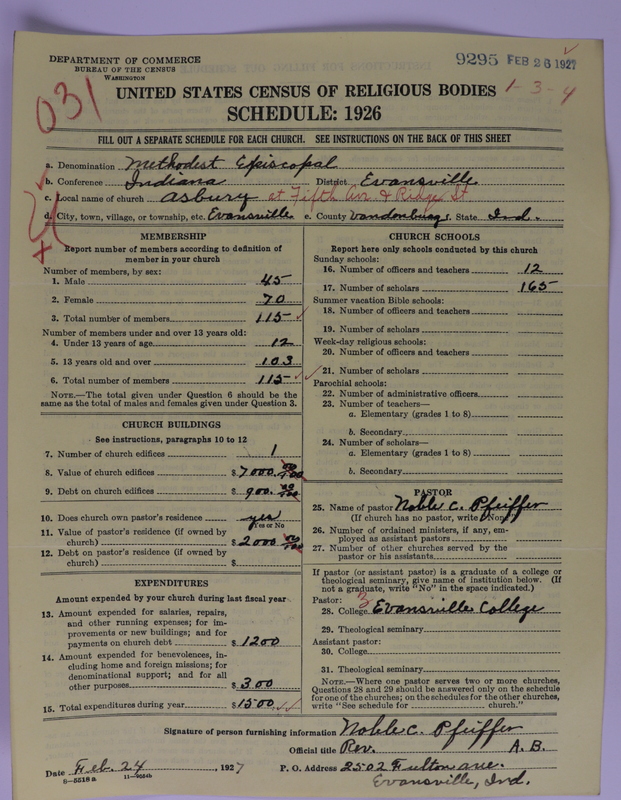 DEPARTMENT OF COMMERCE
BUREAU OF THE CENSUS
WASHINGTON
9295 FEB 26 1927
031
1-3-4
UNITED STATES CENSUS OF RELIGIOUS BODIES
SCHEDULE: 1926
FILL OUT A SEPARATE SCHEDULE FOR EACH CHURCH. SEE INSTRUCTIONS ON THE BACK OF THIS SHEET
a. Denomination Methodist Episcopal
b. Conference Indiana District Evansville
c. Local name of church Asbury at Fifth Ave. & Ridge St
d. City, town, village, or township, etc. Evansville e. County Vandenburg f. State Ind.
MEMBERSHIP
Report number of members according to definition of
member in your church
Number of members, by sex:
1. Male 45
2. Female 70
3. Total number of members 115
Number of members under and over 13 years old:
4. Under 13 years of age 12
5. 13 years old and over 103
6. Total number of members 115
NOTE.—The total given under Question 6 should be the
same as the total of males and females given under Question 3.
CHURCH BUILDINGS
See instructions, paragraphs 10 to 12
7. Number of church edifices 1
8. Value of church edifices $ 7000.00/100
9. Debt on church edifices $ 900.00/100
10. Does church own pastor's residence yes
Yes or No
11. Value of pastor's residence (if owned by
church) $ 2000 00/100
12. Debt on pastor's residence (if owned by
church) $
EXPENDITURES
Amount expended by your church during last fiscal year
13. Amount expended for salaries, repairs,
and other running expenses; for im-
provements or new buildings; and for
payments on church debt $ 1200
14. Amount expended for benevolences, in-
cluding home and foreign missions; for
denominational support; and for all
other purposes $ 300
15. Total expenditures during year $ 1500
CHURCH SCHOOLS
Report here only schools conducted by this church
Sunday schools:
16. Number of officers and teachers 12
17. Number of scholars 165
Summer vacation Bible schools:
18. Number of officers and teachers
19. Number of scholars
Week-day religious schools:
20. Number of officers and teachers
21. Number of scholars
Parochial schools:
22. Number of administrative officers
23. Number of teachers—
a. Elementary (grades 1 to 8)
b. Secondary
24. Number of scholars—
a. Elementary (grades 1 to 8)
b. Secondary
PASTOR
25. Name of pastor Noble C. Pfeiffer
(If church has no pastor, write "None")
26. Number of ordained ministers, if any, em-
ployed as assistant pastors
27. Number of other churches served by the
pastor or his assistants
If pastor (or assistant pastor) is a graduate of a college or
theological seminary, give name of institution below. (If
not a graduate, write "No" in the space indicated.)
Pastor: 3
28. College Evansville College
29. Theological seminary
Assistant pastor:
30. College
31. Theological seminary
NOTE.—Where one pastor serves two or more churches,
Questions 28 and 29 should be answered only on the schedule
for one of the churches; on the schedules for the other churches,
write "See schedule for church."
Signature of person furnishing information Noble C. Pfeiffer
Official title Rev. A. B.
Date Feb. 24, 1927 P. O. Address 2502 Fulton ave.
8-5518 a 11-9554b Evansville, Ind.